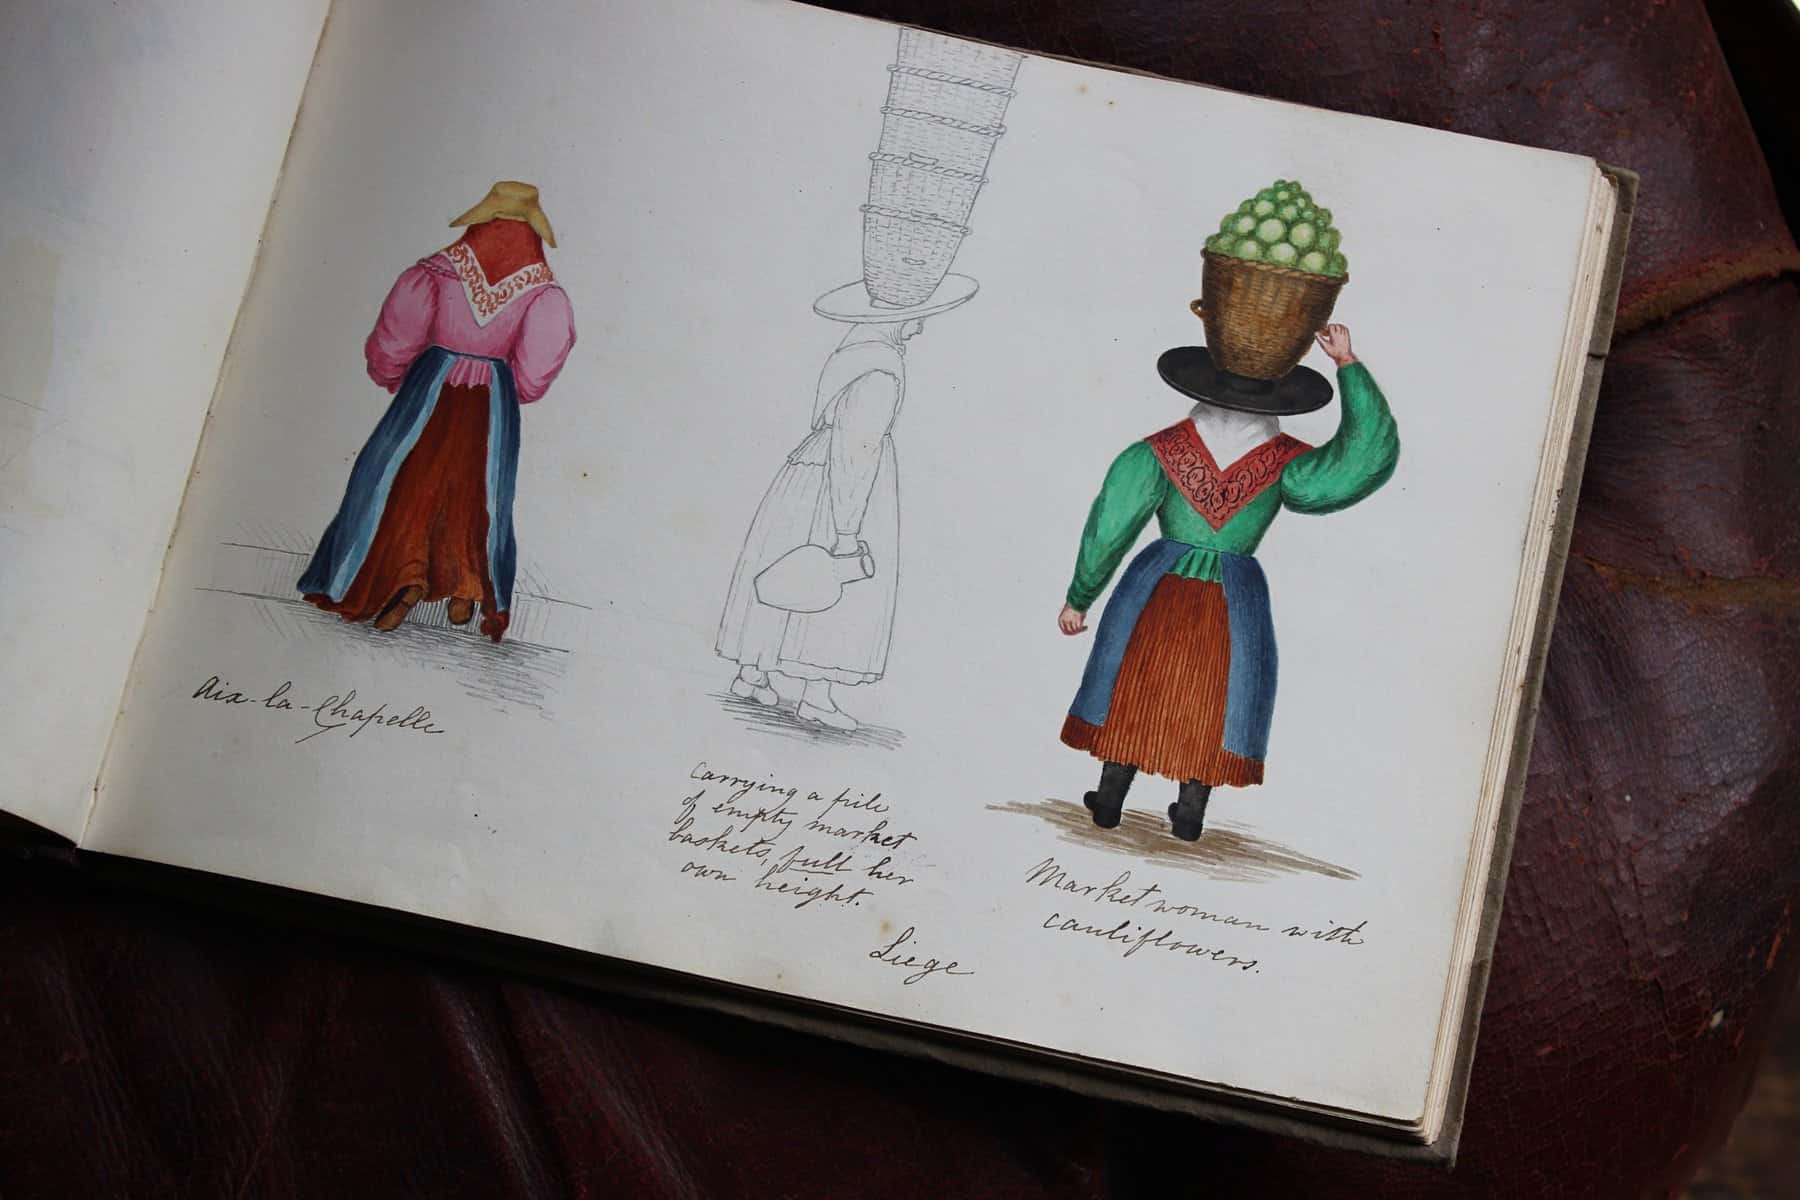 Aix-la-Chapelle
Carrying a pile
of empty market
baskets, full her
own height.
Liege
Market woman with
cauliflowers.